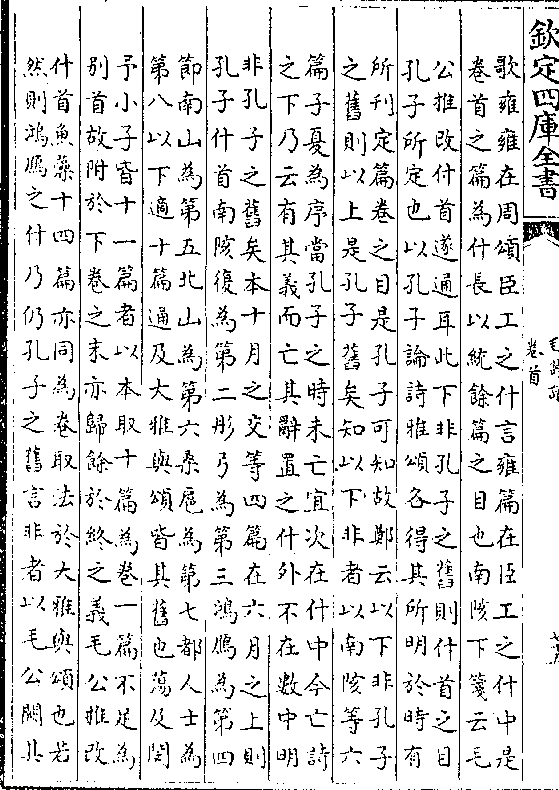 欽定四庫全書
卷首
歌雍雍在周頌臣工之什言雍篇在臣工之什中是
卷首之篇為什長以統餘篇之目也南陔下箋云毛
公推改什首遂通耳此下非孔子之舊則什首之目
孔子所定也以孔子論詩雅頌各得其所明於時有
所刊定篇卷之目是孔子可知故鄭云以下非孔子
之舊則以上是孔子舊矣知以下非者以南陔等六
篇子夏為序當孔子之時未亡宜次在什中今亡詩
之下乃云有其義而亡其辭置之什外不在數中明
非孔子之舊矣本十月之交等四篇在六月之上則
孔子什首南陔復為第二彤弓為第三鴻鴈為第四
節南山為第五北山為第六桑扈為第七都人士為
第八以下適十篇通及大雅與頌皆其舊也蕩及閔
予小子皆十一篇者以本取十篇為卷一篇不足為
別首故附於下卷之末亦歸餘於終之義毛公推改
什首魚藻十四篇亦同為卷取法於大雅與頌也若
然則鴻鴈之什乃仍孔子之舊言非者以毛公闕其